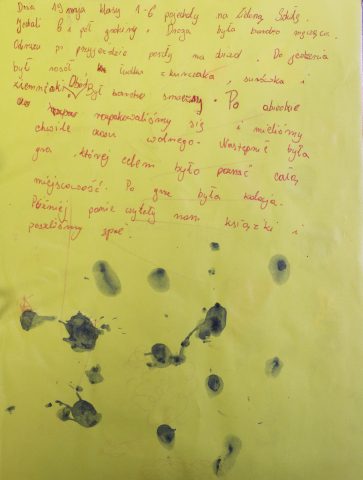 Dnia 19 maja klasy 1-6 pojechały na Zieloną Szkołę.
Jechali 6 i pół godziny. Droga była bardzo męcząca.
po przyjeździe poszły na obiad. Do jedzenia
był rosół kurczaka, surówka i
ziemniaki Obiad był bardzo smaczny. Po obiedzie
rozpakowaliśmy się i mieliśmy
chwilę czasu wolnego. Następnie była
gra, której celem było poznać całą
miejscowość. Po grze była kolacja.
Później panie czytały nam książki i
poszliśmy spać.